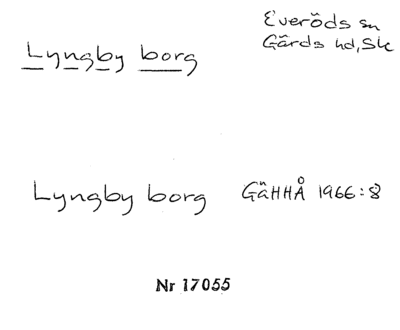 Lyngby borg
Everöds sn
Gärds hd, Sk
Lyngby borg GäHHÅ 1966:8
Nr 17055